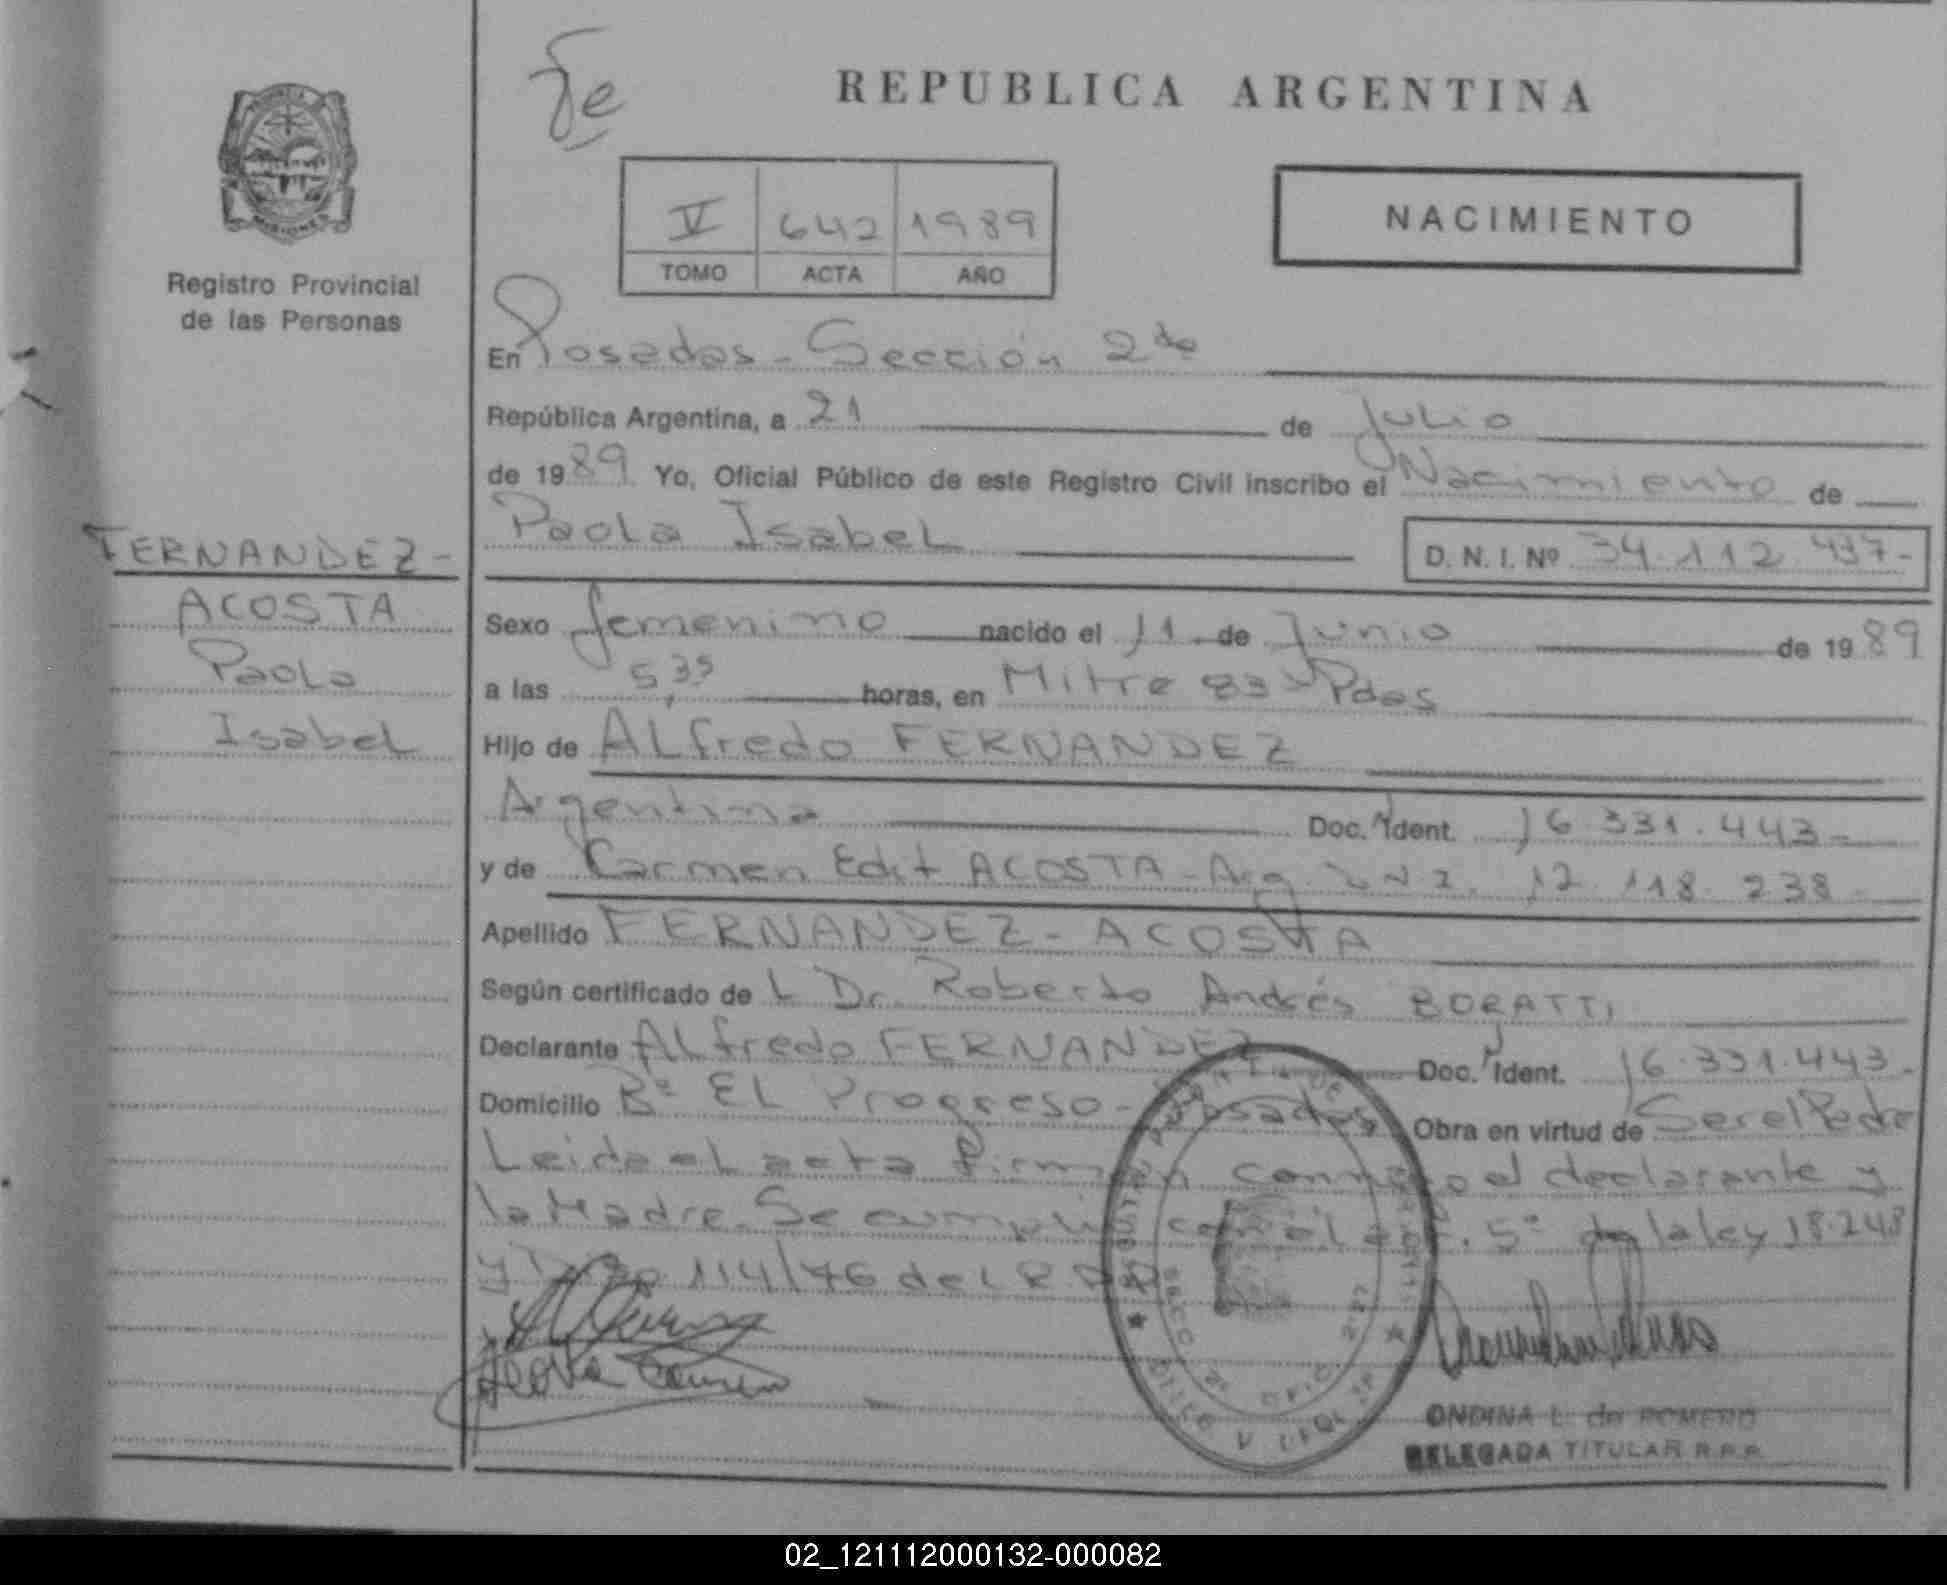 Fe
REPUBLICA ARGENTINA
V 642 1989
TOMO ACTA AÑO
NACIMIENTO
Registro Provincial
de las Personas
En Posadas - Sección 2da
República Argentina, a 21 de Julio
de 1989. Yo, Oficial Público de este Registro Civil inscribo el Nacimiento de
Paola Isabel
D. N. I. Nº 34.112.437-
FERNANDEZ-
ACOSTA
Paola
Isabel
Sexo femenino nacido el 11 de Junio de 1989
a las 5,35 horas, en Mitre Pdas
Hijo de ALfredo FERNANDEZ
Argentina Doc. Ident. 16.331.443-
y de Carmen Edit ACOSTA - Arg. 12.118.238-
Apellido FERNANDEZ - ACOSTA
Según certificado de L Dr. Roberto Andrés BORATTI
Declarante ALfredo FERNANDEZ Doc. Ident. 16.331.443-
Domicilio Bº EL Progreso - Posadas Obra en virtud de Ser el Padre
Leida eL acta firman conmigo el declarante y
la Madre. Se cumplió con el art. 5º de la ley 18.248
y 114/76 deL R.P.P.
ONDINA L. de ROMERO
DELEGADA TITULAR R.P.P.
02_121112000132-000082